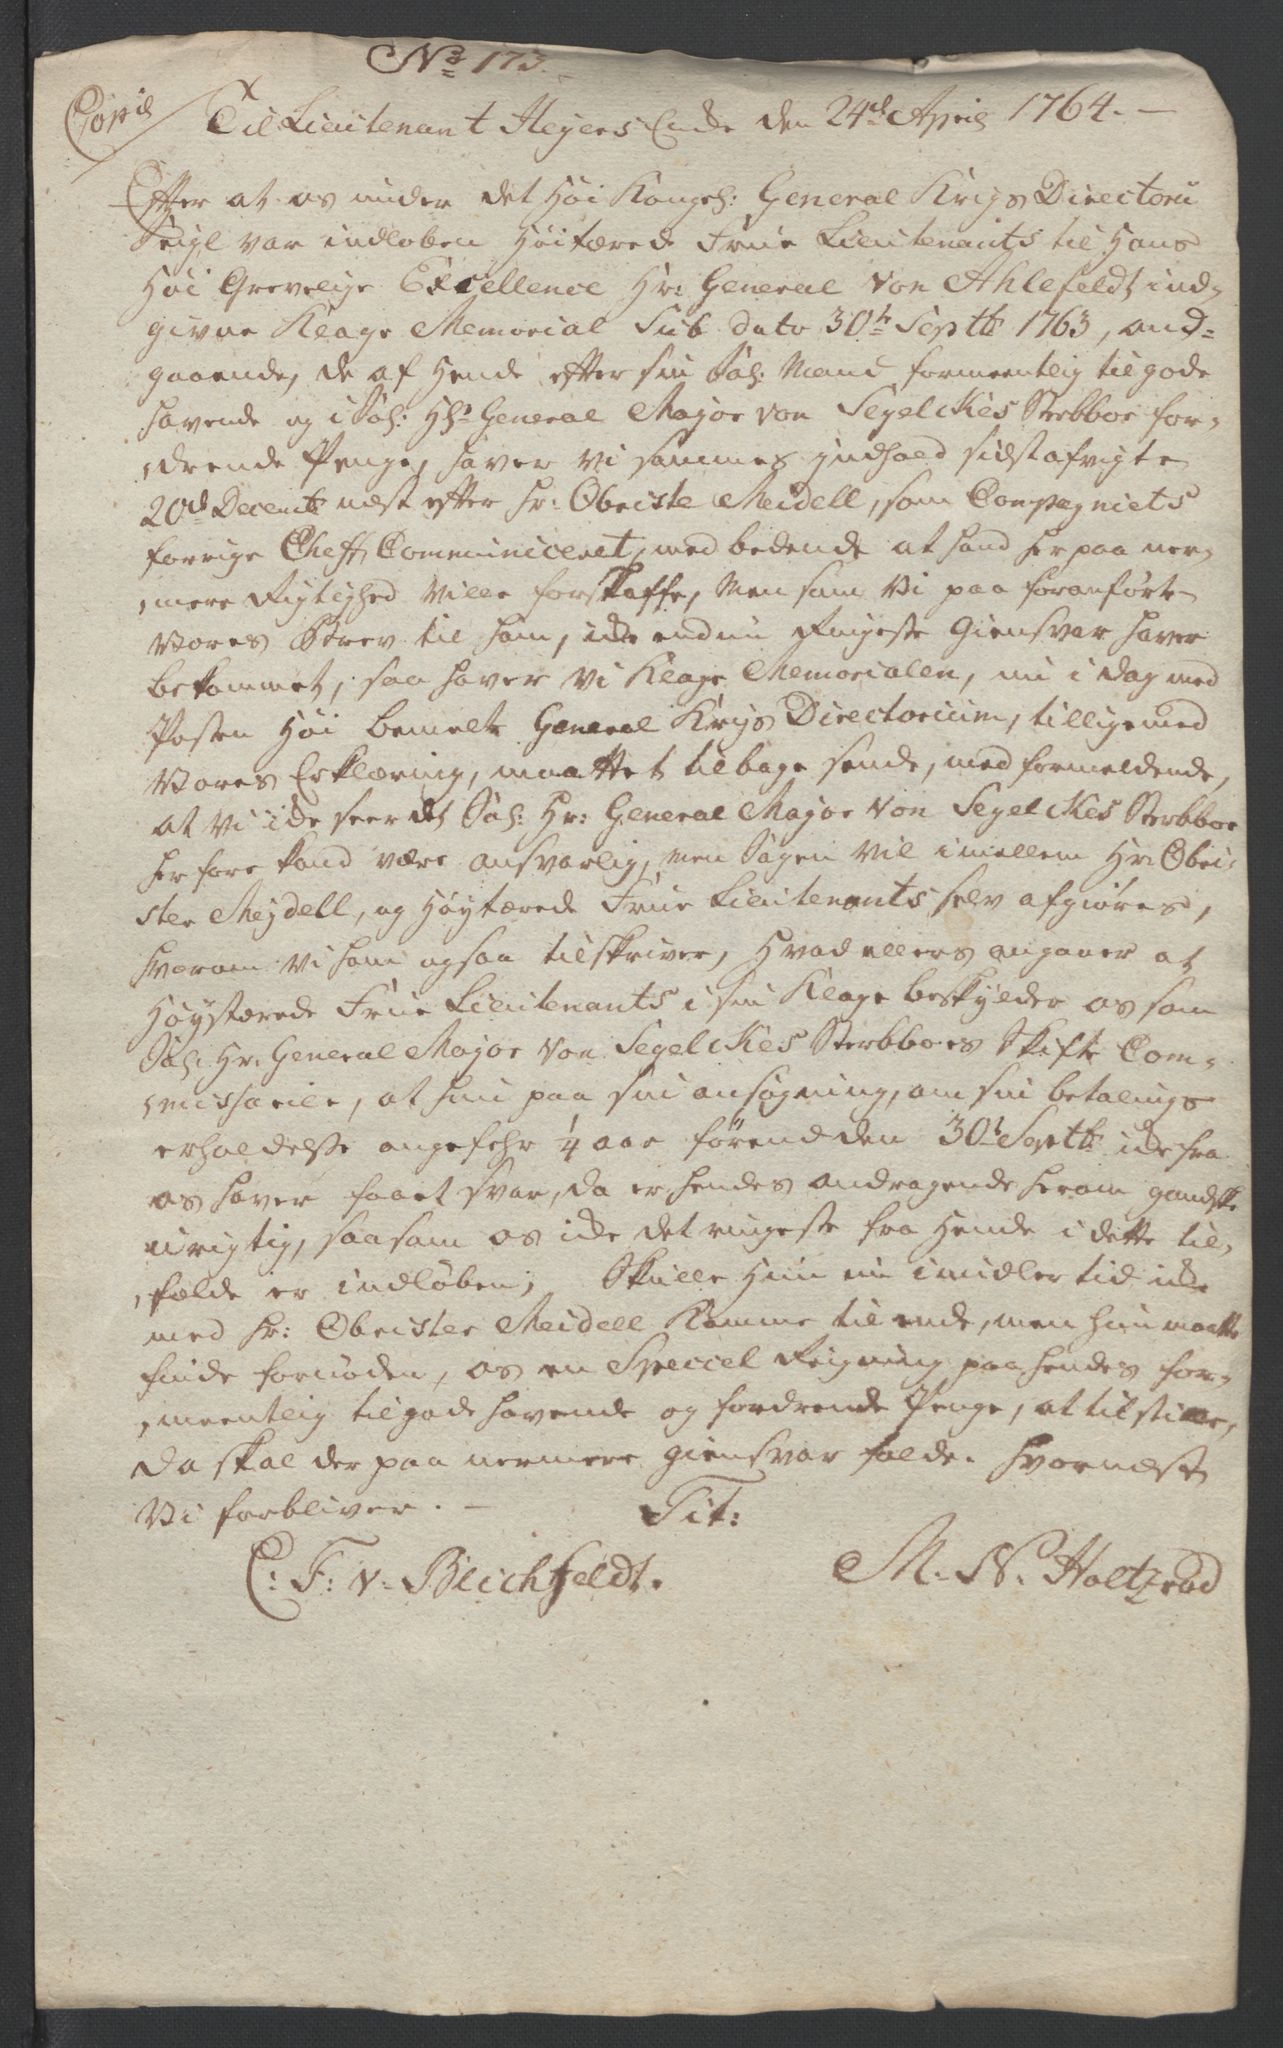 No 173.
Copie
Til Lieutenant Heyers Encke den 24de April 1764.
Efter at os under det Høi Kongel: General Krigs Directorii
Seigl var indløben Høitærede Frue Lieutenants til Hans
Høi Grevelige Excellence Hr: General von Ahlefeldt ind-
givne Klage Memorial sub dato 30te Septbr 1763, and-
gaaende, de af Hende efter sin Sal: Mand formeentlig tilgode
havende og i Sal: Hr: General Major von Segelckes Sterbboe for-
drende Penge, haver vi sammes Indhold sidstafvigte
20de Decembr næst efter Hr: Obriste Meidell, som Compagniets
forrige Cheff Communiceret, med bedende at hand her paa ner-
mere Rigtighed ville forskaffe, Men som vi paa foranførte
Vores Brev til ham, icke endnu ringeste Giensvar haver
bekommet, saa haver vi Klage Memorialen, nu i dag med
Posten Høi bemelte General Krigs Directorium, tillige med
Vores Erklæring, maattet tilbage sende, med formeldende,
at vi icke seer det Sal: Hr: General Major von Segelckes Sterbboe
herfore kand være ansvarlig, men Sagen vil imellem Hr: Obri-
ster Meydell, og Høytærede Frue Lieutenants selv afgiøres,
hvorom vi ham ogsaa tilskriver, Hvad ellers angaaer at
Høystærede Frue Lieutenants i sin Klage beskylder os som
Sal: Hr: General Major von Segelckes Sterbboes Skifte Com-
missarier, at hun paa sin ansøgning, om sin betalings
erholdelse ongefehr 1/4 aar førend den 30te Septbr icke fra
os haver faaet svar, da er hendes andragende herom gandske
urigtig, saasom os icke det ringeste fra Hende i dette til-
fælde er indløben, Skulle Hun nu imidlertid icke
med Hr: Obrister Meidell komme til ende, men hun maatte
finde fornøden, os en Speciel Reigning paa hendes for-
meentlig tilgode havende og fordrende Penge, at tilstille,
da skal der paa nermere giensvar falde. Hvornæst
Vi forbliver.
Tit:
C: F: v. Blichfeldt.
M. N. Holtzrod